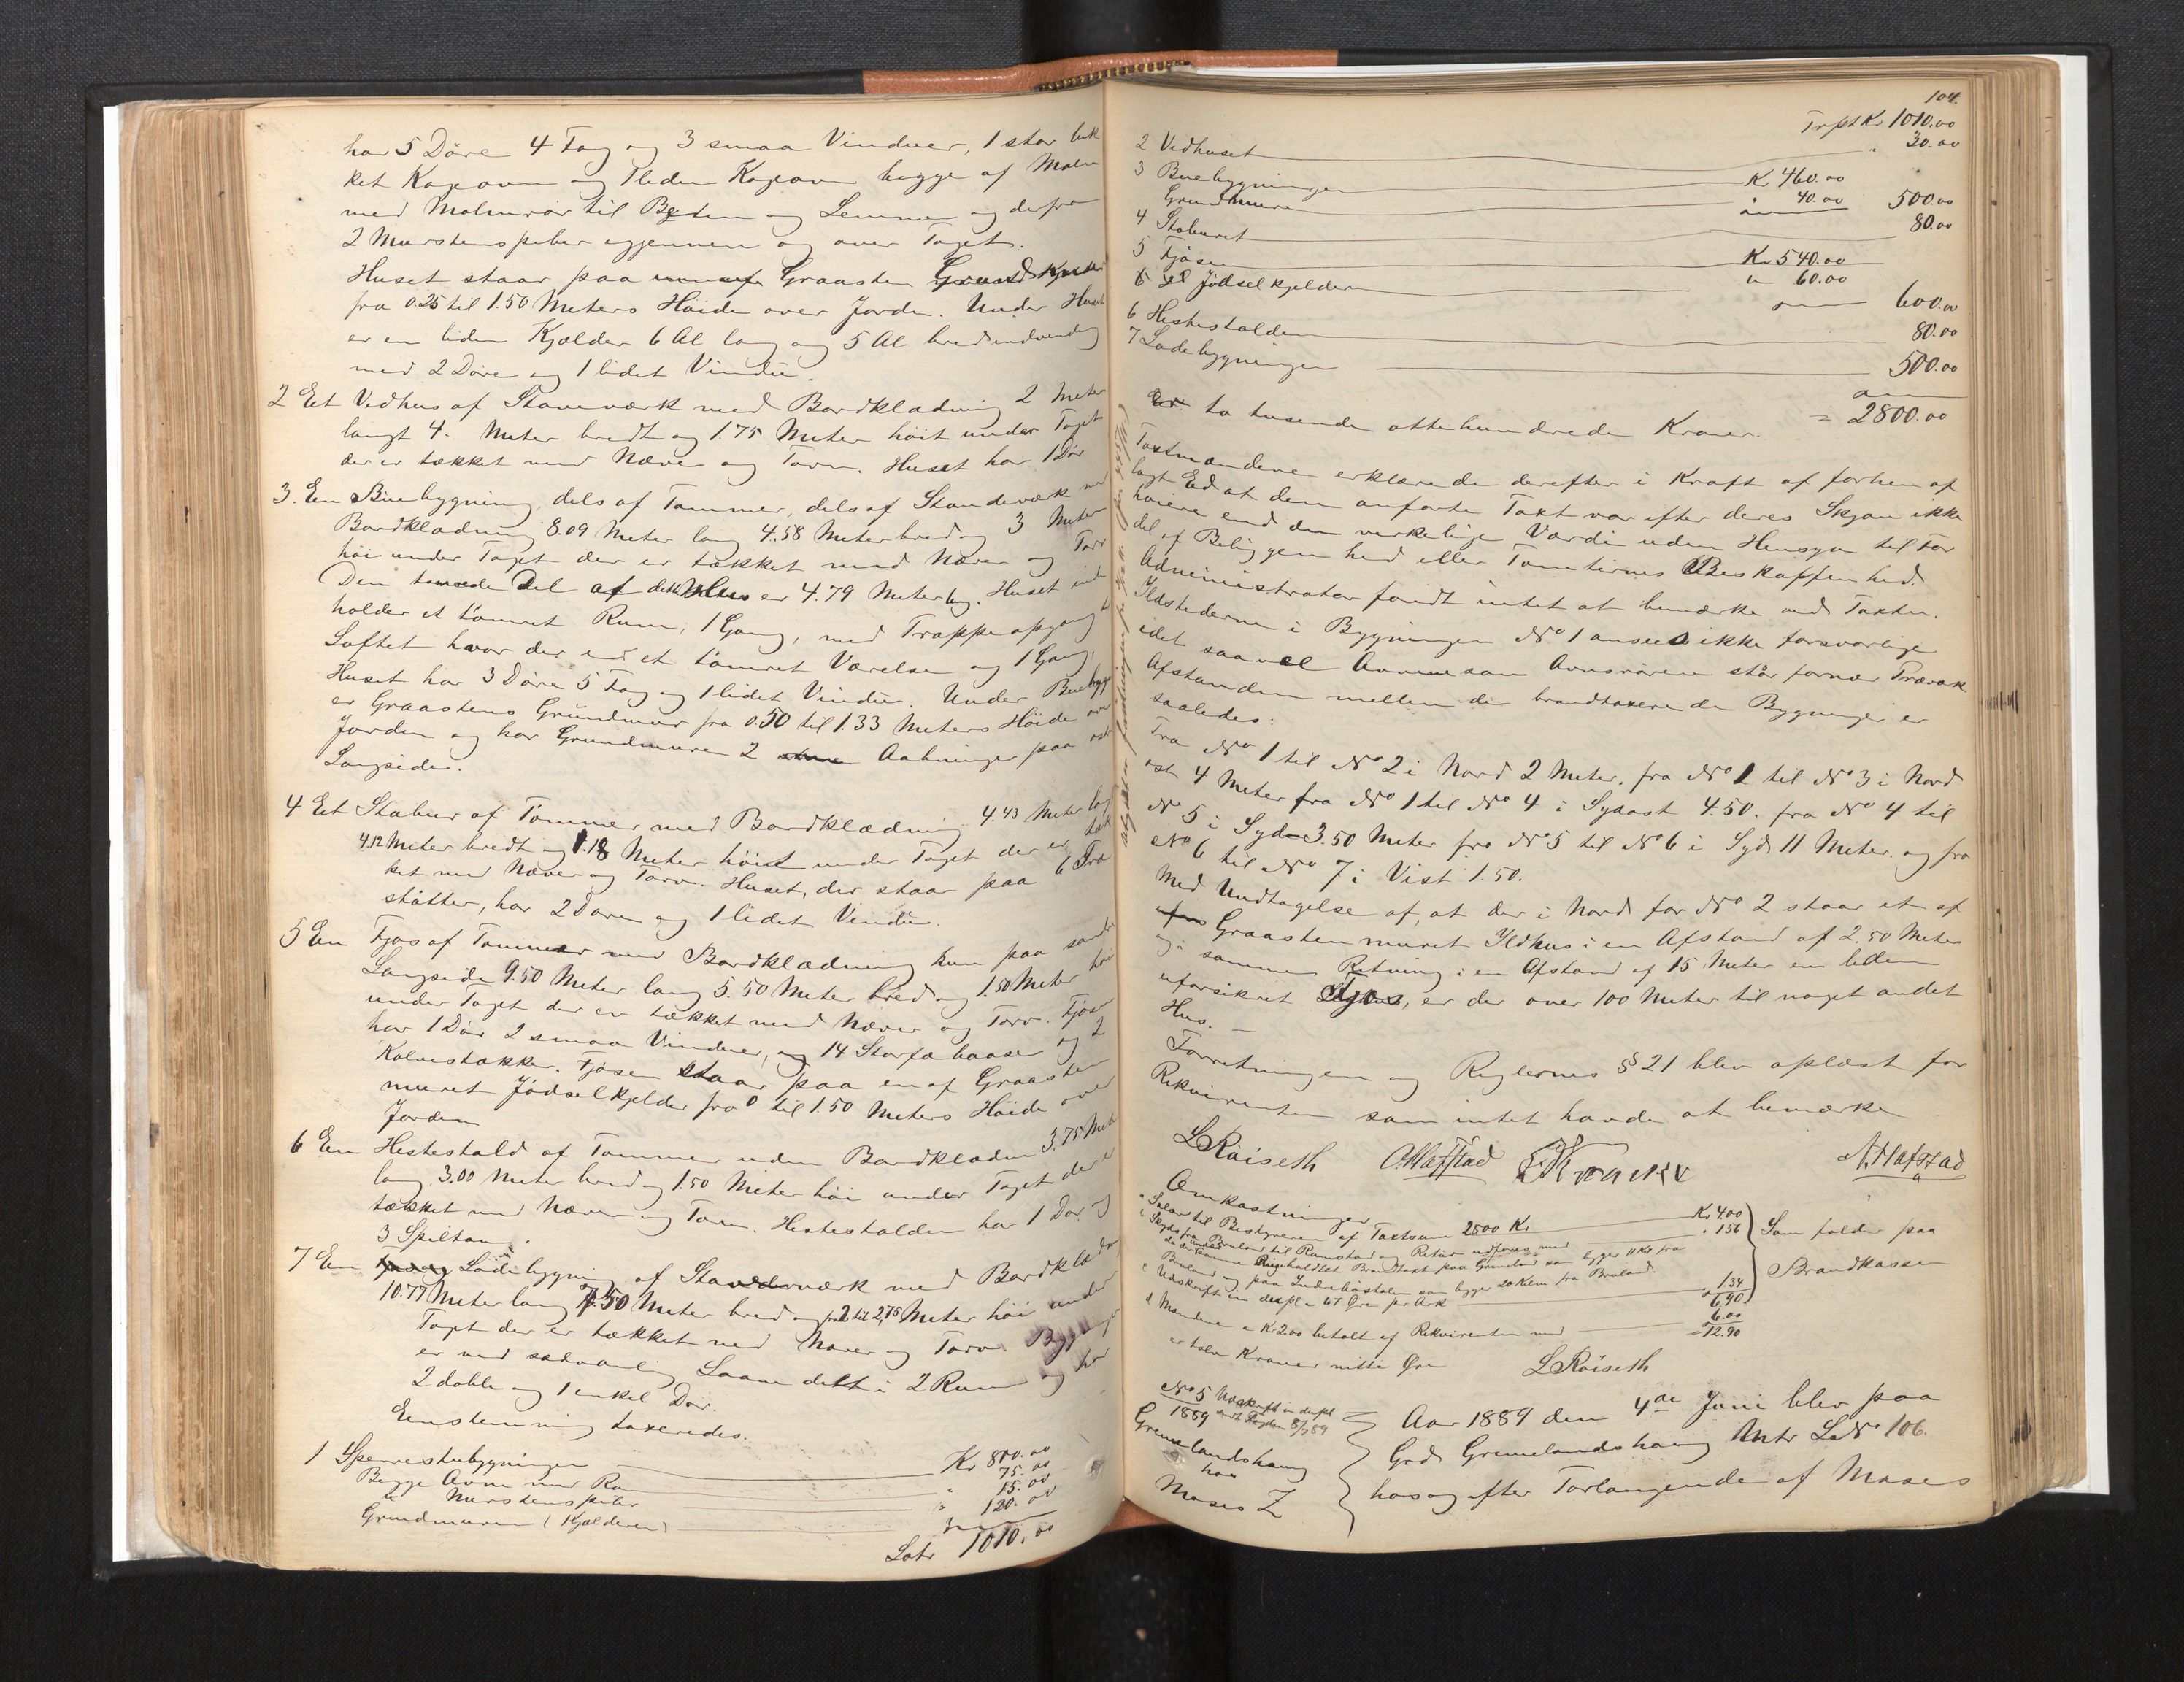 har 5 Döre 4 Fag og 3 smaa Vinduer, 1 stor luk
ket Kogeovn og 1 liden Kogeovn begge af Malm
med Malmrör til og Lemmer og derfra
2 Murstenspiber igjennem og over Taget.
Huset staar paa Graasten Grund
fra 0.25 til 1.50 Meters Höide over Jorden. Under Huset
er en liden Kjælder 6 Al lang og 5 Al bred indvendig
med 2 Döre og 1 lidet Vindu.
2 Eet Vedhus af Staveværk med Bordklædning 2 Meter
langt 4. Meter bredt og 1.75 Meter höit under Taget
der er tækket med Næver og Torv. Huset har 1 Dör
3. En Buebygning, dels af Tömmer, dels af Standeværk med
Bordklædning 8.09 Meter lang 4.58 Meter bred og 3 Meter
höi under Taget der er tækket med Næver og Torv
Den tömrede Del af dette Hus er 4.79 Meter lg. Huset inde
holder et tömret Rum, 1 Gang, med Trappeopgang til
Loftet hvor der er et tömret Værelse og 1 Gang.
Huset har 3 Döre 5 Fag og 1 lidet Vindu. Under Buebygg
er Graastens Grundmur fra 0.50 til 1.33 Meters Höide over
Jorden og har Grundmuren 2 store Aabninger paa östr
Langside.
4 Eet Stabur af Tömmer med Bordklædning 4.43 Meter langt
4.12 Meter bredt og 1.18 Meter höit under Taget der er tæk
ket med Næver og Torv. Huset, der staar paa 6 Træ
stötter, har 2 Döre og 1 lidet Vindu.
5 En Fjös af Tömmer med Bordklædning kun paa söndre
Langside 9.50 Meter lang 5.50 Meter bred og 1.50 Meter höi
under Taget der er tækket med Næver og Torv. Fjösen
har 1 Dör 2 smaa Vinduer, og 14 Storfæbaase og 2
Kalvestakke. Fjösen staar paa en af Graasten
muret Gjödselkjelder fra 0 til 1.50 Meters Höide over
Jorden
6 En Hestestald af Tömmer uden Bordklædn 3.75 Meter
lang 3.00 Meter bred og 1.50 Meter höi under Taget der er
tækket med Næver og Torv. Hestestalden har 1 Dör og
3 Spiltoug.
7 En Ladebygning af Standerværk med Bordklædn
10.77 Meter lang 4.50 Meter bred og fra 2 til 2,75 Meter höi under
Taget der er tækket med Næver og Torv. Bygningen
er ved sædvanlig Laave delt i 2 Rum og har
2 doble og 1 enkel Dör.
Eenstemmig taxeredes.
1 Sperrestubygningen Kr 800.00
Begge Ovne med Rör " 75.00
" Murstenspiber " 15.00
Grundmuren (Kjælderen) " 120.00
Latr 1010.00
104.
Trpt Kr 1010.00
2 Vedhuset " 30.00
3 Buebygningen Kr 460.00
Grundmuren " 40.00 500.00
4 Staburet 80.00
5 Fjösen Kr 540.00
Gjödselkjelderen " 60.00
600.00
6 Hestestalden 80.00
7 Ladebygningen 500.00
to tusende ottehundrede Kroner. = 2800.00
Taxtmændene erklærede derefter i Kraft af forhen af
lagt Ed at den anförte Taxt var efter deres Skjön ikke
höiere end den virkelige Værdi uden Hensyn til For
del af Beliggenhed eller Tomternes Beskaffenhed.
Administrator fandt intet at bemærke ved Taxten.
Ildstederne i Bygningen No 1 ansees ikke forsvarlige
idet saavel Ovnene som Ovnsrörene står fornær Træværk
Afstanden mellem de brandtaxerede Bygninger er
saaledes:
Fra No 1 til No 2 i Nord 2 Meter. fra No 1 til No 3 i Nord
öst 4 Meter fra No 1 til No 4 i Sydöst 4.50. fra No 4 til
No 5 i Syd 3.50 Meter fra No 5 til No 6 i Syd 11 Meter. og fra
No 6 til No 7 i Vest 1.50.
Med Undtagelse af, at der i Nord for No 2 staar et af
Graasten muret Ildhus i en Afstand af 2.50 Meter
og i samme Retning i en Afstand af 15 Meter en liden
uforsikret, er der over 100 Meter til noget andet
Hus. —
Forretningen og Reglernes § 21 blev oplæst for
Rekvirenten som intet havde at bemærke
L Röiseth O. Hafstad N. Hafstad
Omkostninger
a Salær til Bestyreren af Taxtsum 2800 Kr Kr 4.00
" 1.56
Som falder paa
Brandkassen
c Udskrift in dupl a 67 Öre per Ark 1.34
6.90
d Mændene a Kr 2.00 betalt af Rekvirenten med 6.00
= 12.90
er tolv Kroner nitti Öre L Röiseth
No 5 Udskrift in dupl
1889
Grimelandshaug
hos
Moses Z
Aar 1889 den 4de Juni blev paa
Grd. Grimelandshaug Matr LNo 106.
hos og efter Forlangende af Moses